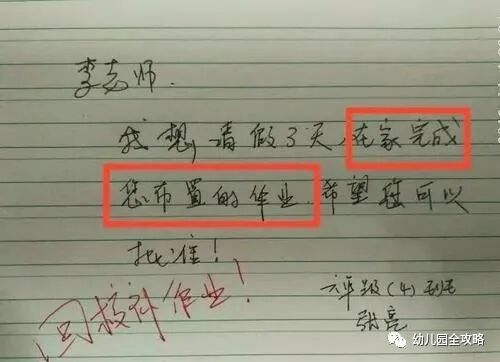 李老师.
我想请假3天，在家完成
您布置的作业.希望您可以
批准！
六年级(4)班
张亮
回校补作业！
幼儿园全攻略